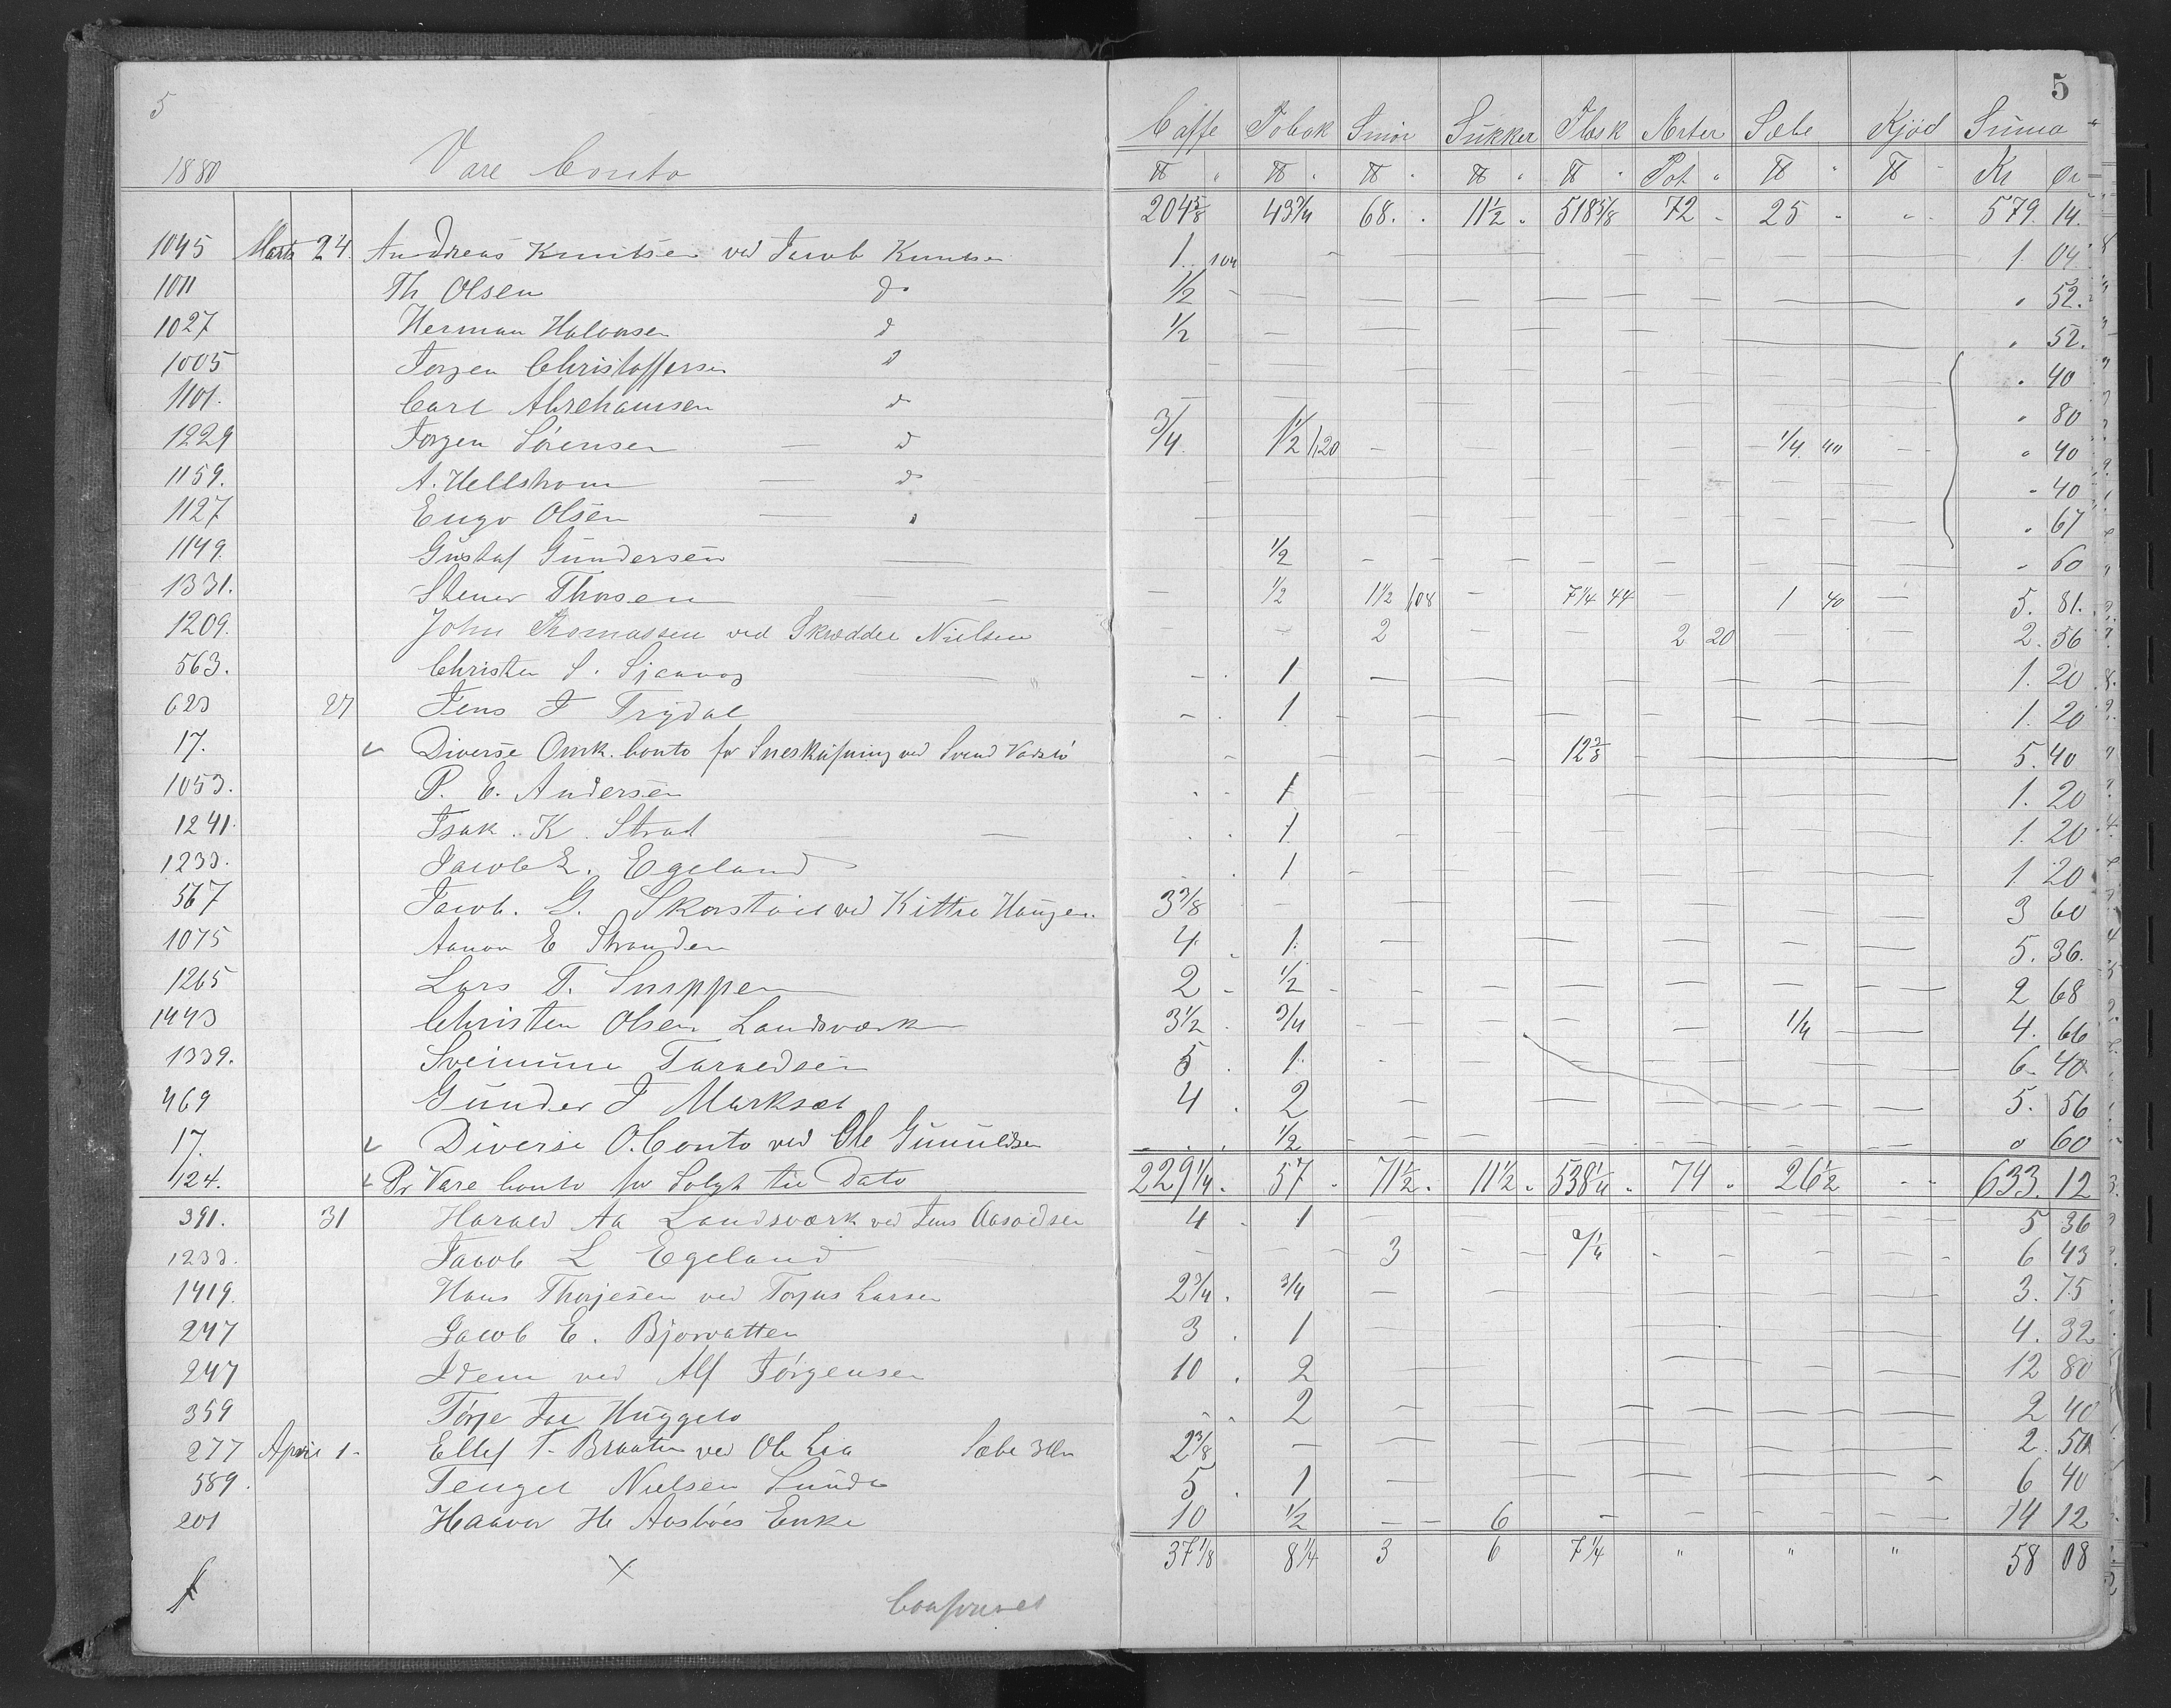 5 5
Caffe Tobak Smør Sukker Flæsk Ærter Sæbe Kjød Suma
1880 Vare Conto ℔ ℔ ℔ ℔ ℔ Pot ℔ ℔ Kr Ør
204 5/8 43 3/4 68. 11 1/2 518 5/8 72 25 579. 14.
1045 Marts 24. Andreas Knutsen ved Jacob Knutsen 1. 104 1. 04.
1011 Th Olsen do 1/2 52.
1027 Herman Halvorsen d 1/2 52.
1005 Jorgen Christoffersen d 40
1101. Carl Abrehamsen d 80
1229 Jorgen Sörensen d 3/4 1 1/2 1,20 1/4 40 40
1159. A. Hellstrom d 40
1127 Engv Olsen 67
1149. Gustaf Gundersen 1/2 60
1331. Stener Thorsen 1/2 1 1/2 108 7 1/4 44 1 40 5. 81.
1209. John Thomassen ved Skrædder Nielsen 2 2 20 2. 56
563. Christen S. 1 1. 20
623 27 Jens J Trydal 1 1. 20
17. Diverse Omk. Conto for ved Svend 12 3/8 5. 40
1053. P. E. Andersen 1 1. 20
1241. Isak. K. Strat 1. 1. 20
1233. Jacob L. Egeland 1 1 20
567 Jacob. G. ved Kittel Haugen 3 3/8 3 60
1075 Aanon E Stranden 4. 1. 5. 36.
1265 Lars T. Snippen 2 1/2 2 68
1443 Christen Olsen Landsværk 3 1/2 3/4 1/4 4. 66
1339. Sveinung Taraldsen 5 1. 6. 40
469 Gunder J Marksæt 4 2 5. 56
17. Diverse O. Conto ved Ole Gunuldsen 1/2 60
124. Pr Vare Conto for Solgt til Dato 229 1/4. 57 71 1/2. 11 1/2 538 1/4 74 26 1/2 633. 12
391. 31 Harald Aa Landsværk ved Jens 4 1 5 36
1233. Jacob L Egeland 3 7 1/4 6 43
1419. Hans Thorjesen ved Torjus Larsen 2 3/4. 3/4 3. 75
247 Jacob E. Bjorvatten 3 1 4. 32
247 Idem ved Alf Jörgensen 10 2 12 80
359 Törje 2 2 40
277 April 1 Ellef T. Braaten ved Ole Lia Sæbe 3 2 3/8 2. 50
589. Tengel Nielsen Lunde 5 1 6 40
201 Haavor H Enke 10 1/2 6 14 12
37 1/8 8 1/4 3 6 7 1/4 " " " 58 08
X
Confereret